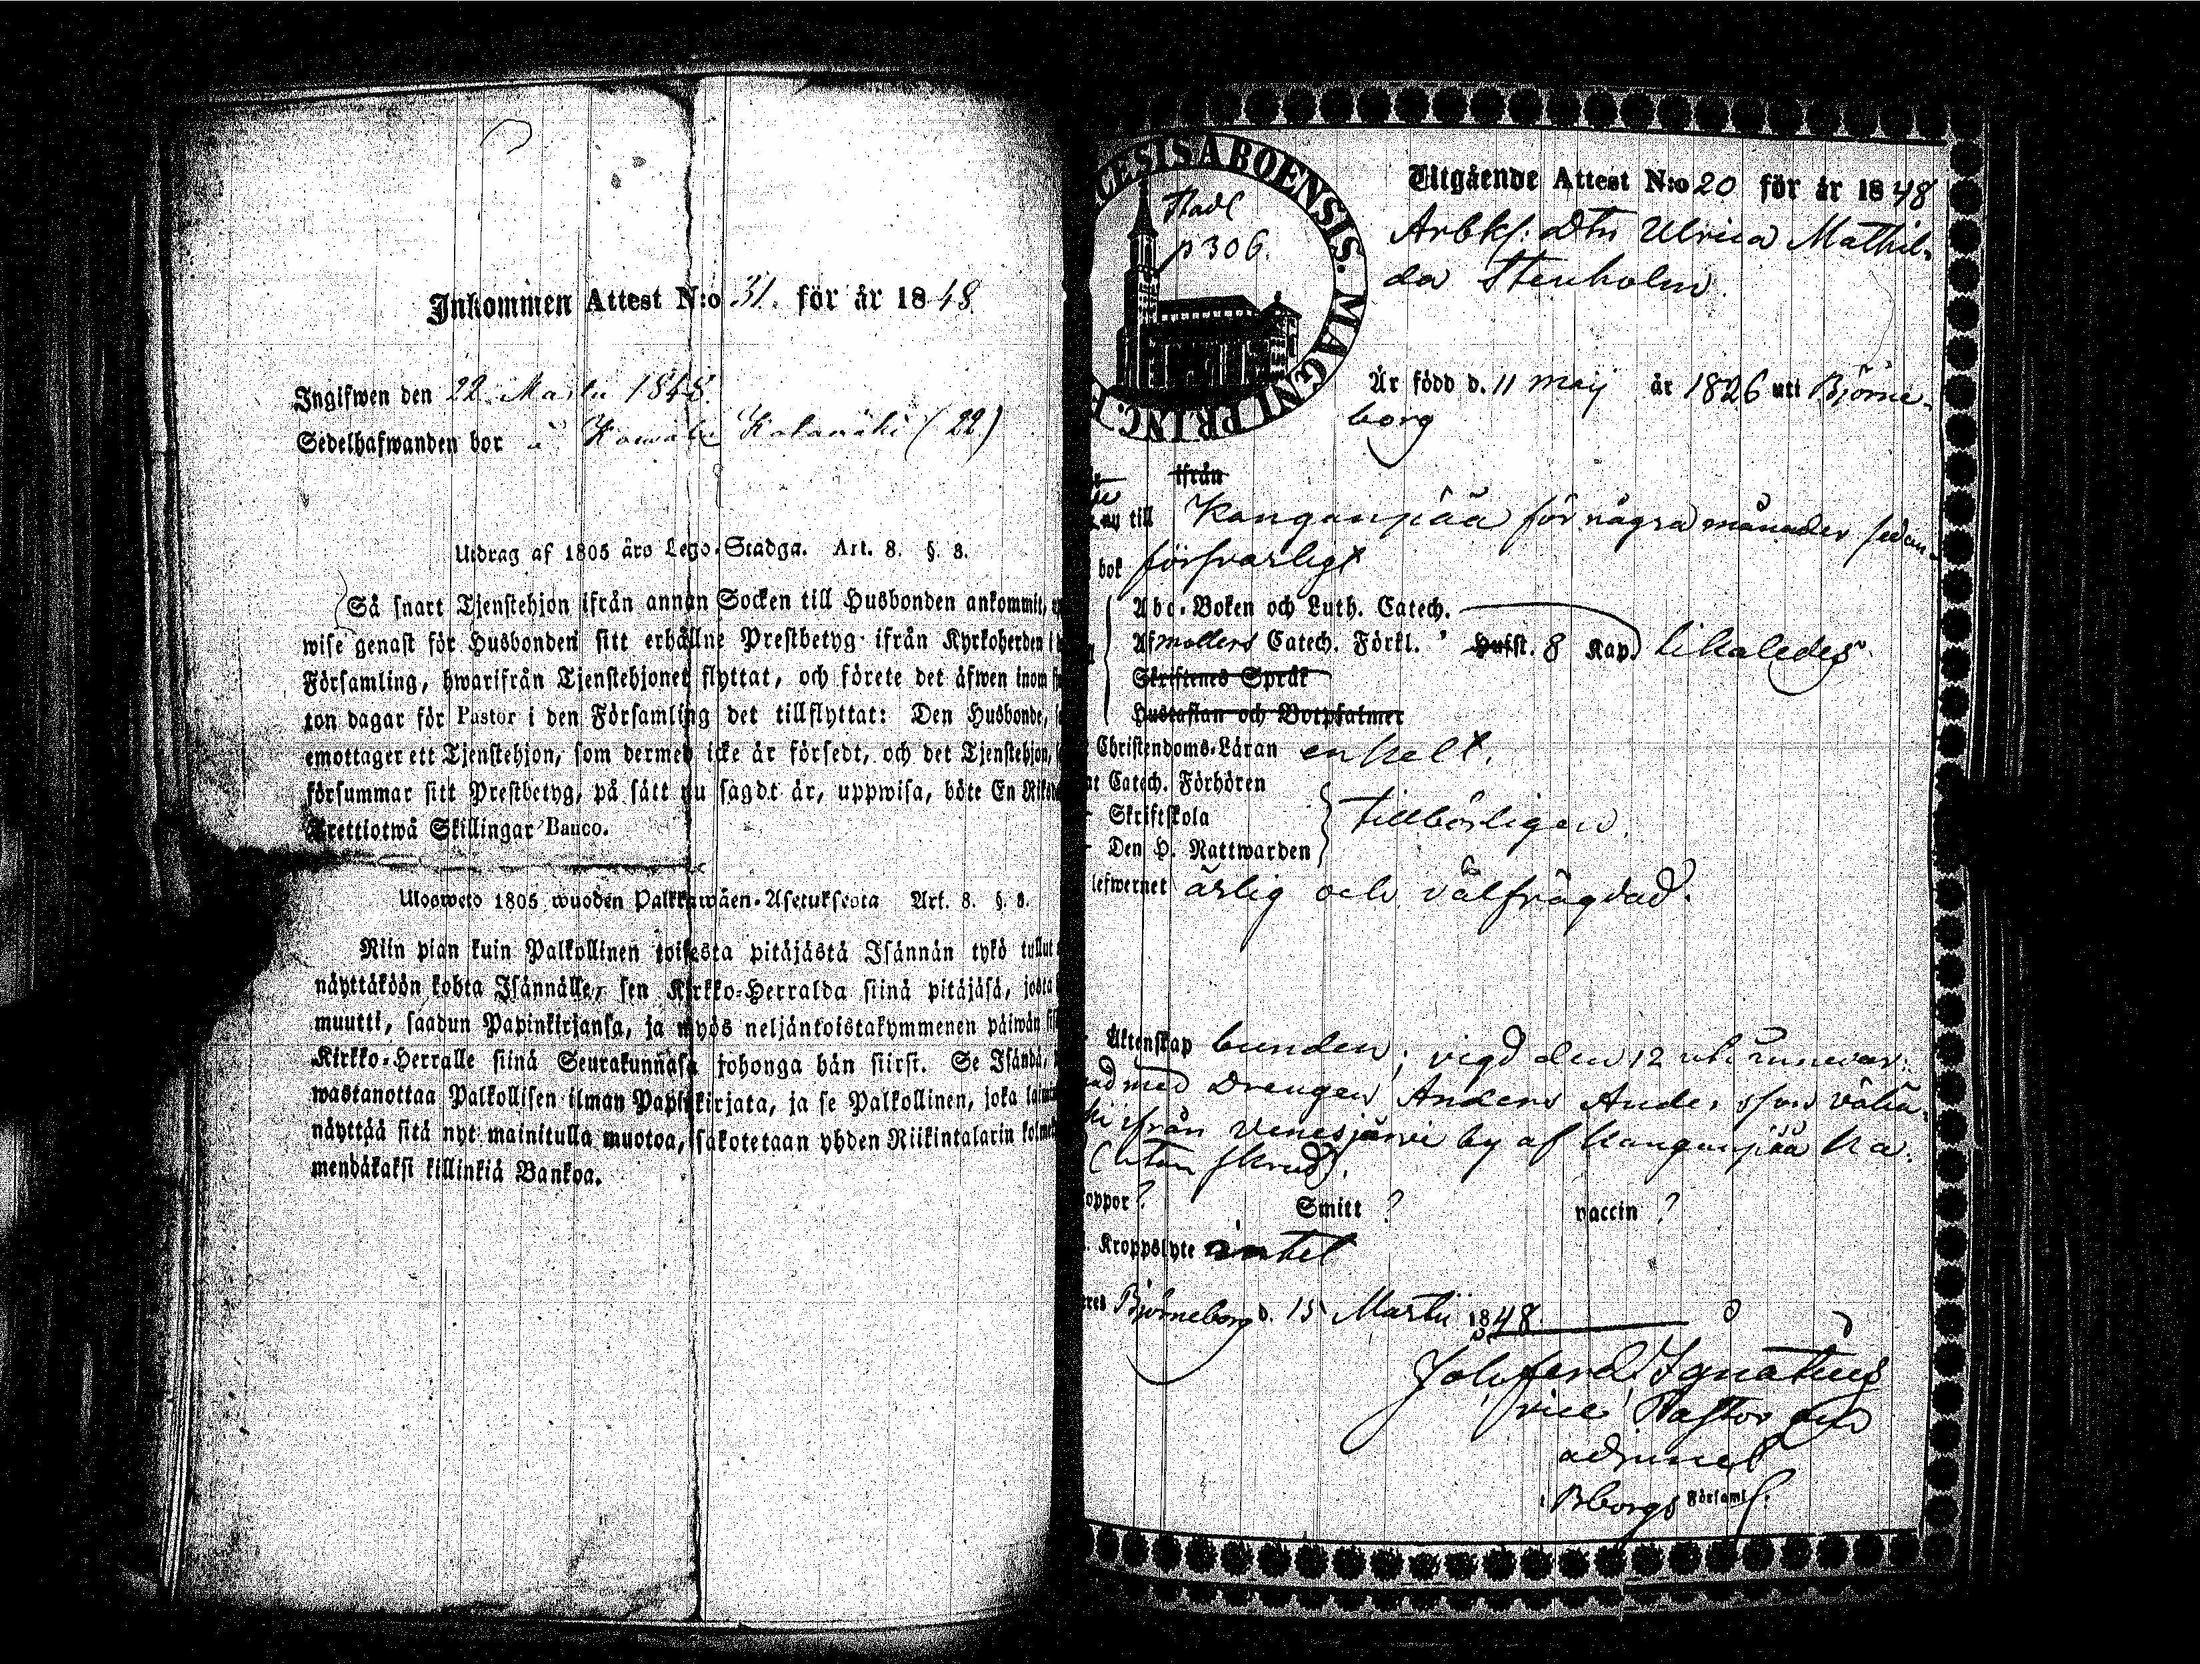 Inkommen Attest N:o 31. för år 1848
Ingifwen den 22 Martii 1848.
Sedelhafwanden bor å (22)
Utdrag af 1805 års Lego-Stadga. Art. 8. §. 8.
Så snart Tjenstehjon ifrån annan Socken till Husbonden ankommit,
wise genast för Husbonden sitt erhållne Prestbetyg ifrån Kyrkoherden i
Församling, hwarifrån Tjenstehjonet flyttat, och förete det äfwen inom
ton dagar för Pastor i den Församling det tillflyttat: Den Husbonde,
emottager ett Tjenstehjon, som dermed icke är försedt, och det Tjenstehjon,
försummar sitt Prestbetyg, på sätt nu sagdt är, uppwisa, böte En
Trettiotwå Skillingar Banco.
Ulosweto 1805 wuoden Palkkawäen-Asetuksesta Art. 8. §. 8.
Niin pian kuin Palkollinen toisesta pitäjästä Isännän tykö tullut
näyttäköön kohta Isännälle, sen Kirkko-Herralda siinä pitäjäsä, josta
muutti, saadun Papinkirjansa, ja myös neljäntoistakymmenen päiwän
Kirkko-Herralle siinä Seurakunnasa johonga hän siirst. Se Isändä,
wastanottaa Palkollisen ilman Papinkirjata, ja se Palkollinen, joka
näyttää sitä nyt mainitulla muotoa, sakotetaan yhden Riikintalarin
mendäkaksi killinkiä Bankoa.
CESIS ABOENSIS. MAGNI PRINC. F
Stadt
p 306.
Utgående Attest N:o 20 för år 1848
Arbkl: Dtn Ulrica Mathil-
da Stenholm
Är född d. 11 Maij år 1826 uti Björne-
borg
ifrån
till Kangan​pää för några månader sedan
bok försvarligt
Abc-Boken och Luth. Catech.
Afmollers Catech. Förkl. Husst. 8 Kap. likaledes
Skriftenes Språk
Hustaflan och Botpsalmer
Christendoms-Läran enkelt.
Catech. Förhören
Skriftskola tillbörligen.
Den H. Nattwarden
lefwernet ärlig och välfrägdad.
Äktenskap bunden; vigd den 12
med Drengen Anders Anders son
ifrån Venesjärvi by af Kanganpää Ka
(utan skrud).
oppor? Smitt? vaccin?
Kroppslyte intet
Björneborg d. 15 Martii 1848
Joh ferd Ignatius
vice Pastor
i Bborgs Församl: